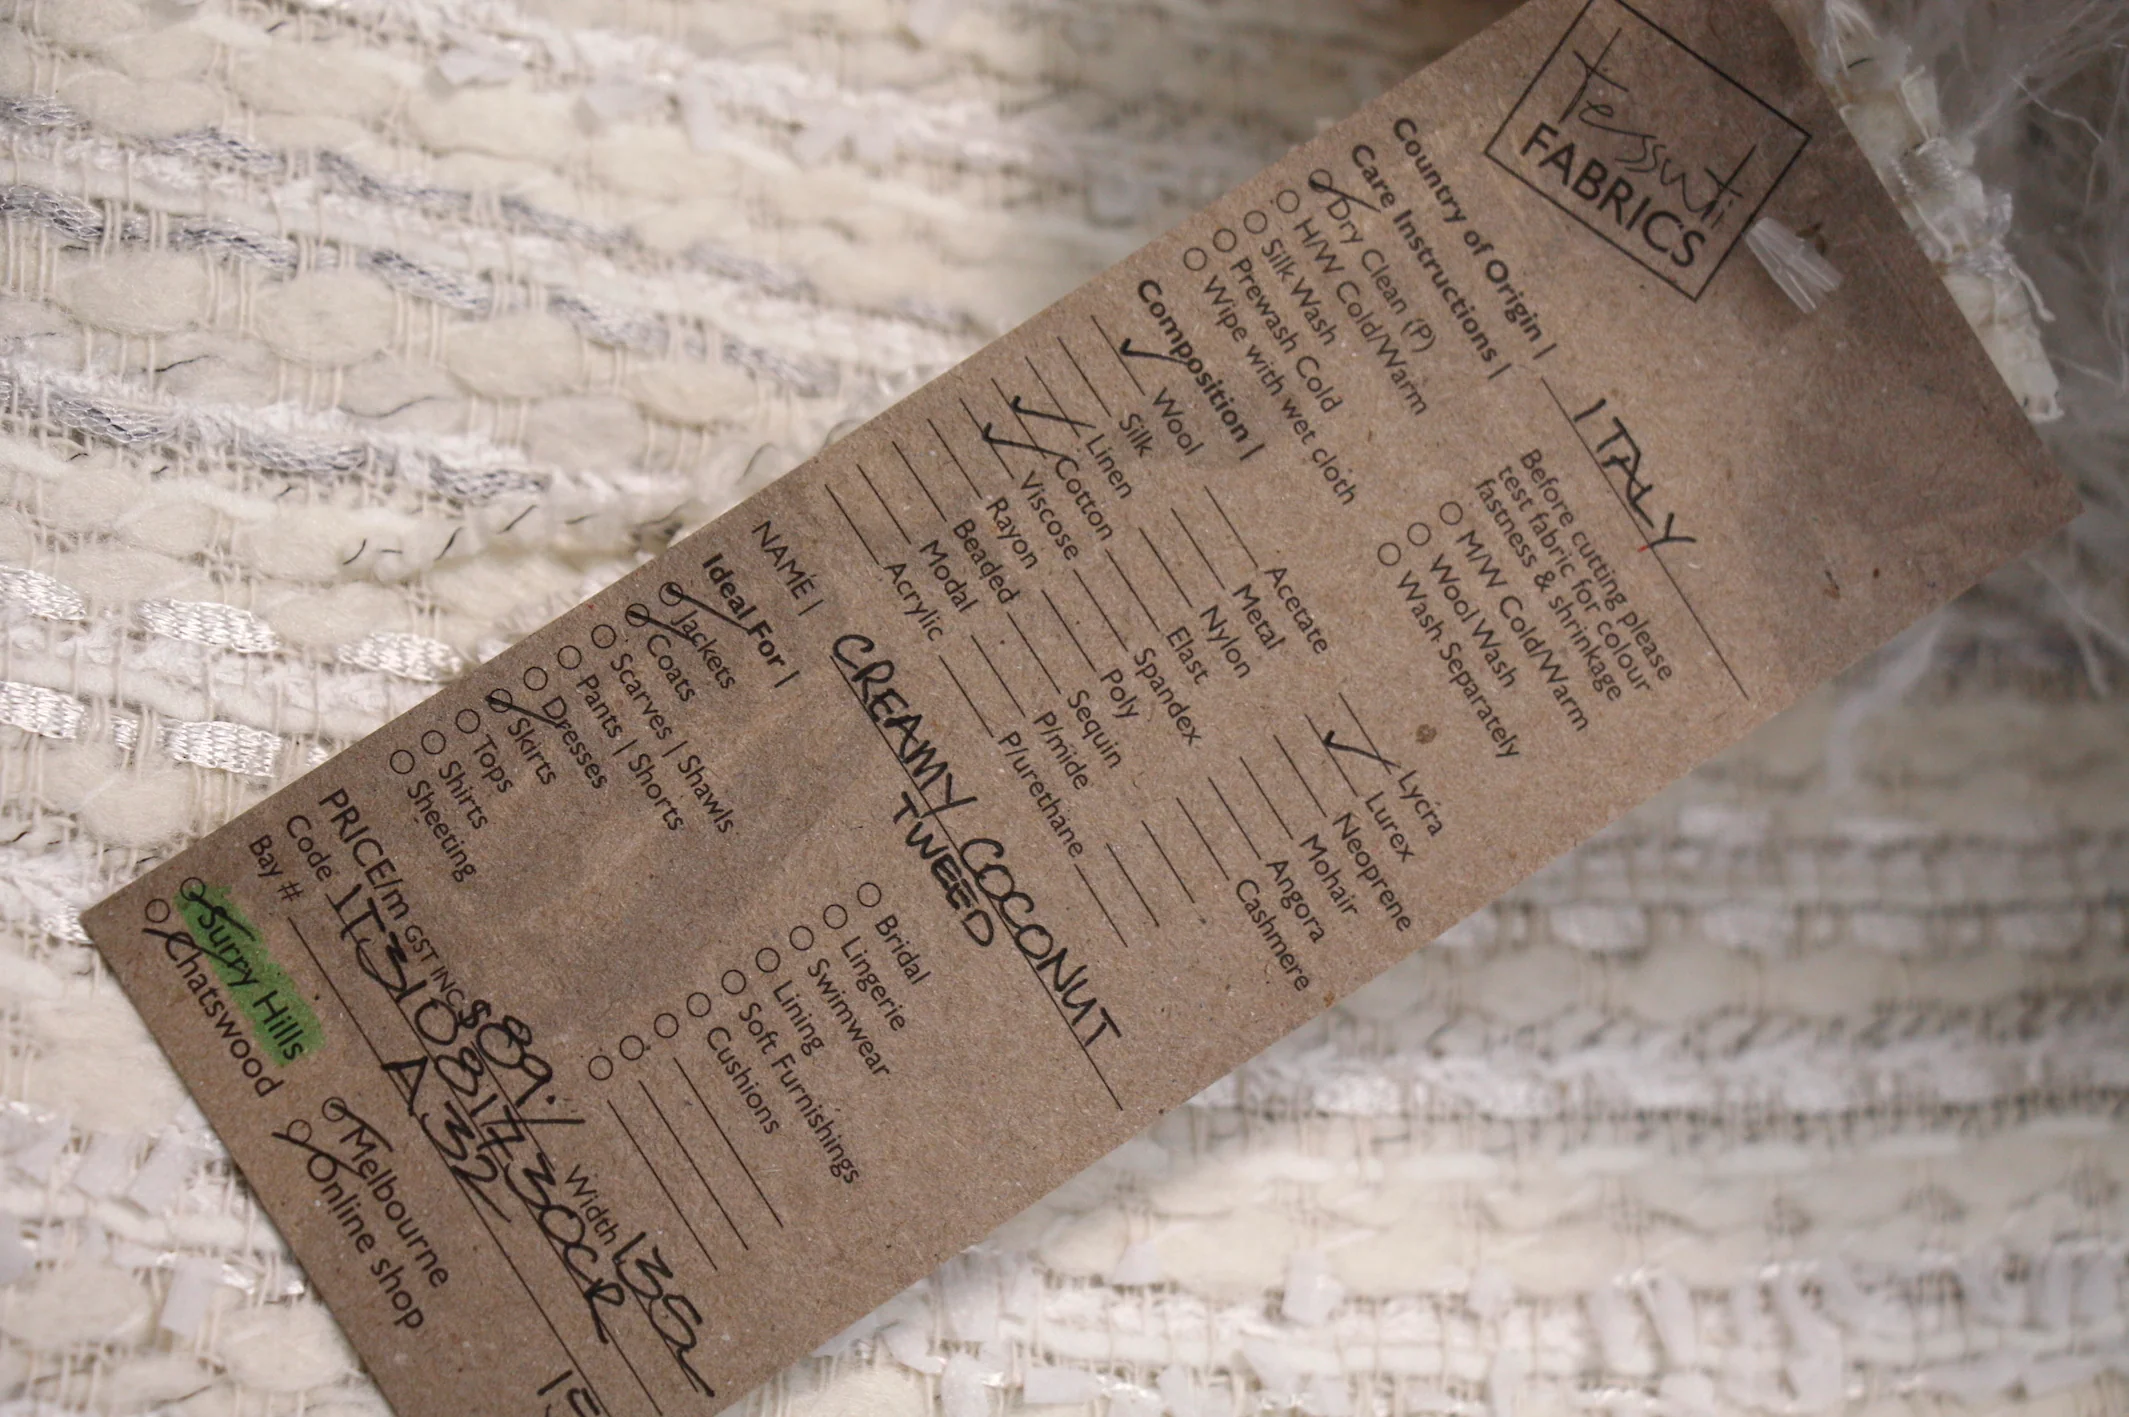 tessuti
FABRICS
Country of Origin | ITALY
Care Instructions |
Dry Clean (P)
H/W Cold/Warm
Silk Wash
Prewash Cold
Wipe with wet cloth
Before cutting please
test fabric for colour
fastness & shrinkage
M/W Cold/Warm
Wool Wash
Wash Separately
Composition |
Wool
Silk
Linen
Cotton
Viscose
Rayon
Beaded
Modal
Acrylic
Acetate
Metal
Nylon
Elast
Spandex
Poly
Sequin
P/mide
P/urethane
Lycra
Lurex
Neoprene
Mohair
Angora
Cashmere
NAME | CREAMY COCONUT
TWEED
Ideal For |
Jackets
Coats
Scarves | Shawls
Pants | Shorts
Dresses
Skirts
Tops
Shirts
Sheeting
Bridal
Lingerie
Swimwear
Lining
Soft Furnishings
Cushions
PRICE/m GST INC $89./ Width 135
Code IT31081730CR
Bay # A32
Surry Hills
Chatswood
Melbourne
Online shop